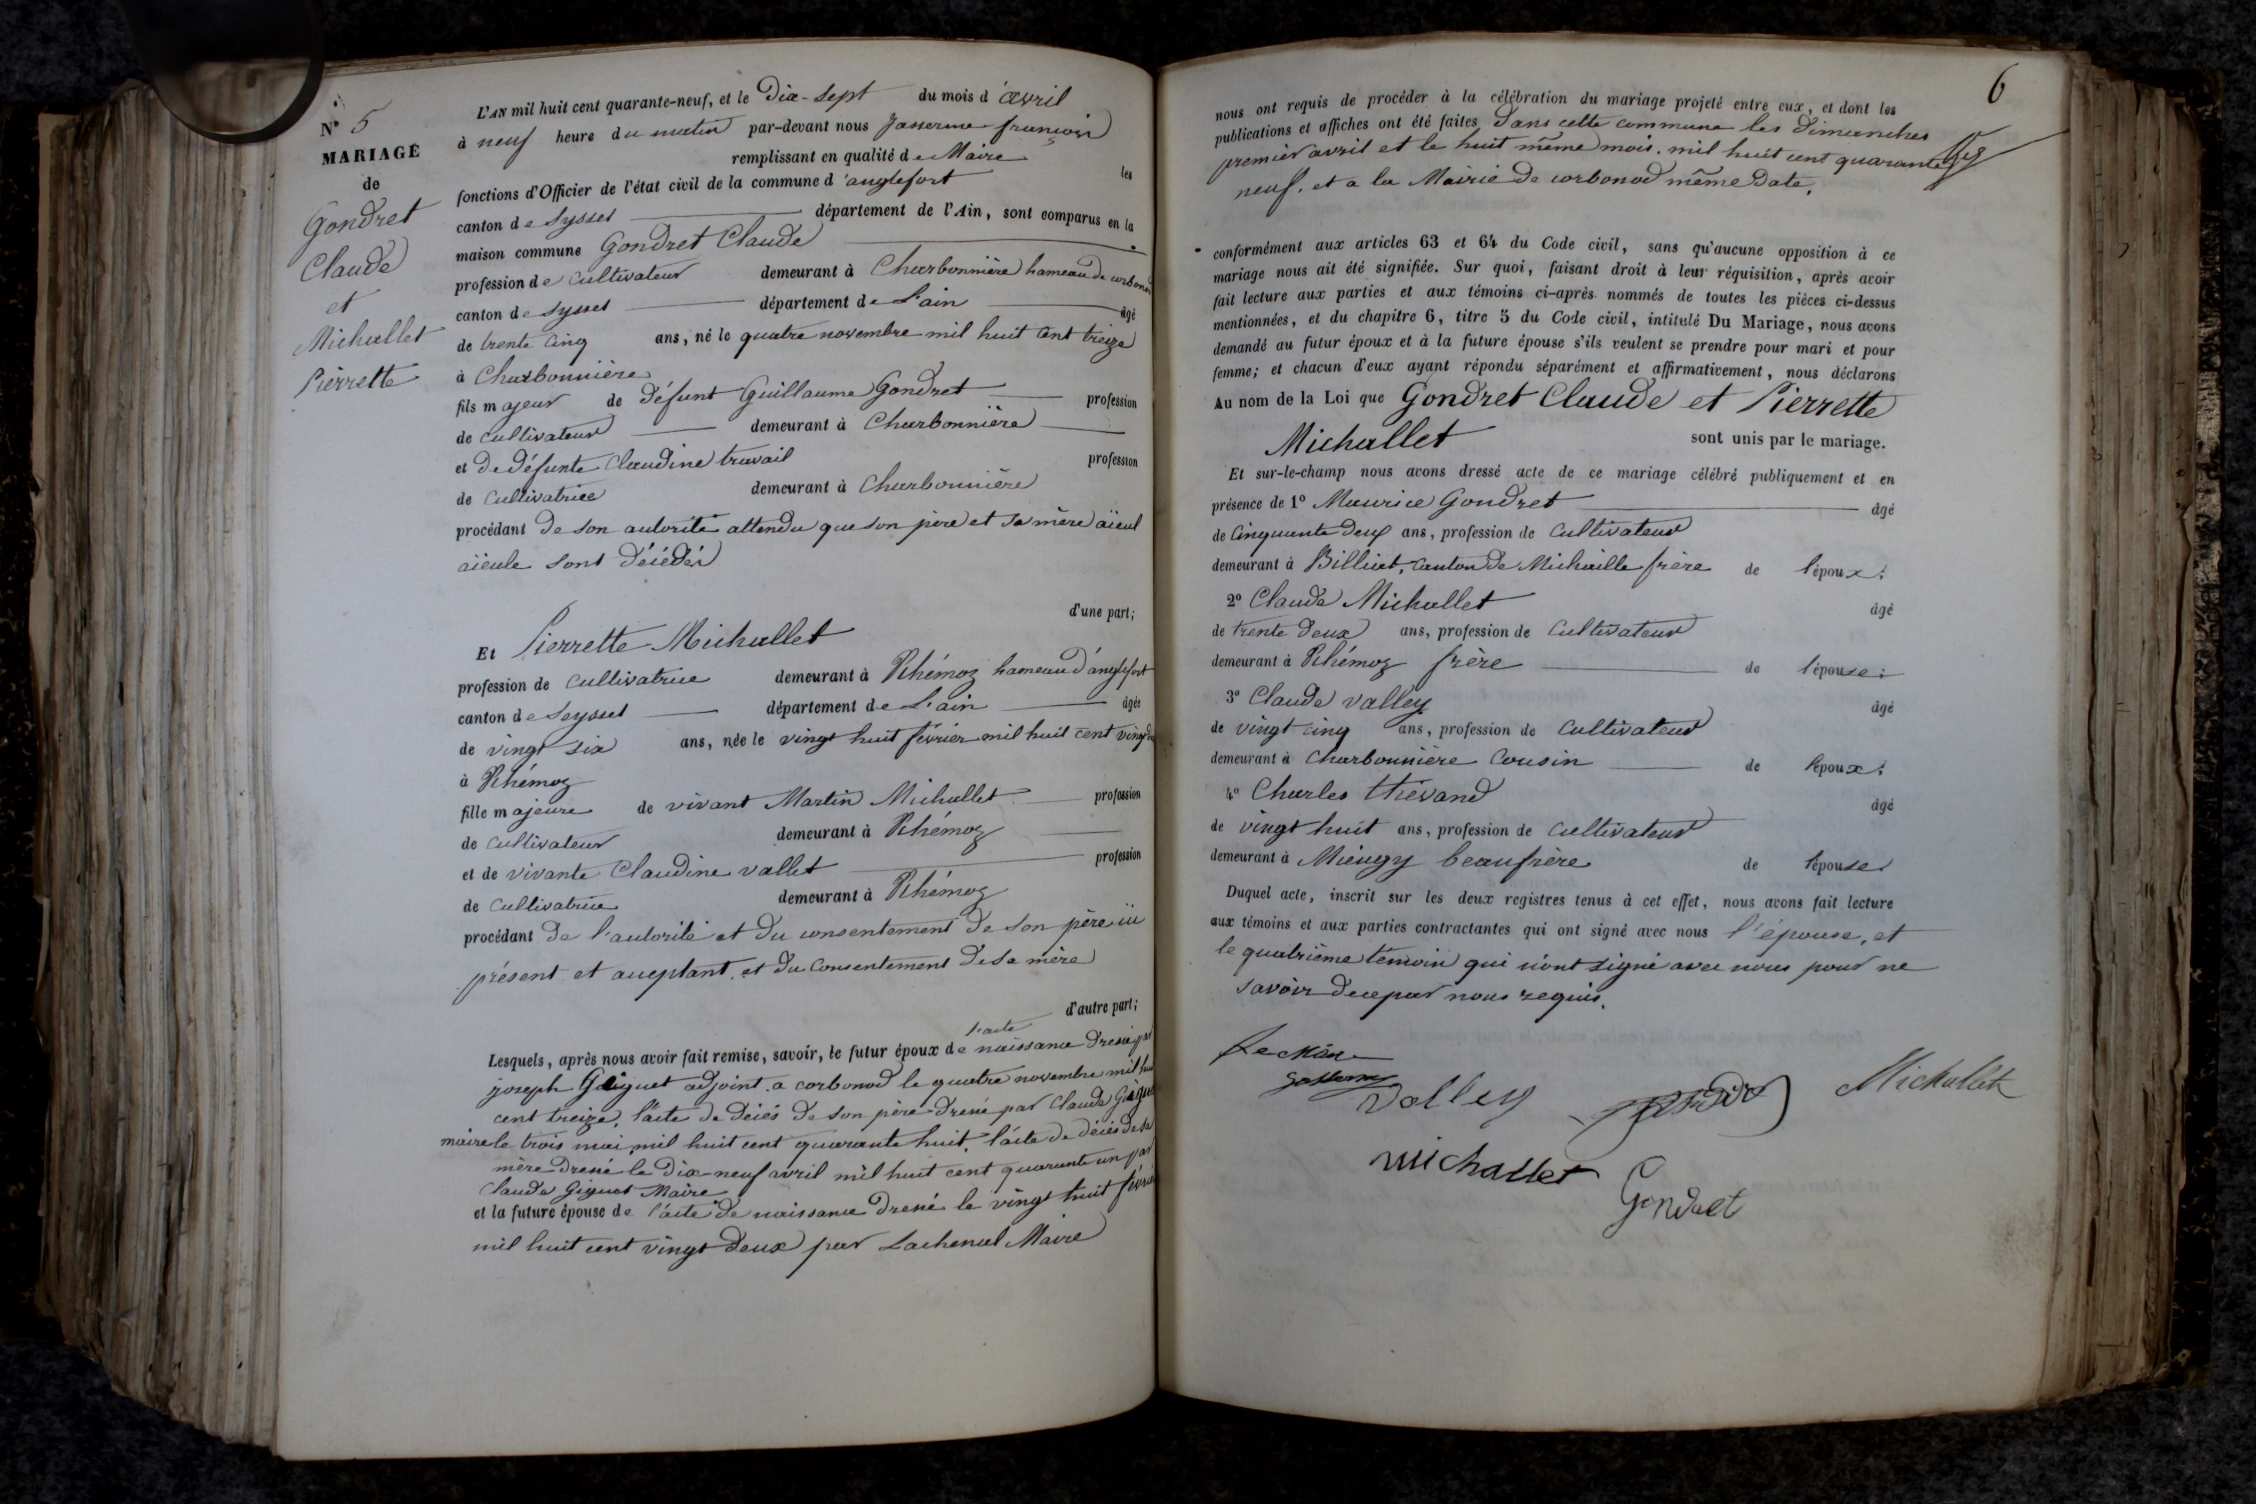 N° 5
MARIAGE
de
Gondret
Claude
et
Michallet
Pierrette
L'AN mil huit cent quarante-neuf, et le Dix-sept du mois d'avril
à neuf heure du matin par-devant nous Jasserme françois
remplissant en qualité de Maire les
fonctions d'Officier de l'état civil de la commune d'anglefort
canton de Syssel département de l'Ain, sont comparus en la
maison commune Gondret Claude
profession de cultivateur demeurant à Charbonnière hameau de corbonod
canton de Syssel département de L'ain âgé
de trente cinq ans, né le quatre novembre mil huit cent treize
à Charbonnière
fils majeur de défunt Guillaume Gondret profession
de cultivateur demeurant à Charbonnière
et de défunte Claudine travail profession
de cultivatrice demeurant à Charbonnière
procédant de son autorité attendu que son père et sa mère aïeul
aïeule sont décédés
d'une part;
Et Pierrette Michallet
profession de cultivatrice demeurant à Rhémoz hameau d'anglefort
canton de Seyssel département de L'ain âgée
de vingt six ans, née le vingt huit février mil huit cent vingt
à Rhémoz
fille majeure de vivant Martin Michallet profession
de cultivateur demeurant à Rhémoz
et de vivante Claudine vallet profession
de cultivatrice demeurant à Rhémoz
procédant de l'autorité et du consentement de son père ici
présent et acceptant, et du consentement de sa mère
d'autre part;
l'acte
Lesquels, après nous avoir fait remise, savoir, le futur époux de naissance dressé par
joseph Gaiguet adjoint a corbonod le quatre novembre mil huit
cent treize, l'acte de décès de son père dressé par Claude
maire le trois mai mil huit cent quarante huit, l'acte de décès de sa
mère dressé le dix-neuf avril mil huit cent quarante un par
Claude Giguet Maire
et la future épouse de l'acte de naissance dressé le vingt huit février
mil huit cent vingt deux par Lachenal Maire
6
nous ont requis de procéder à la célébration du mariage projeté entre eux, et dont les
publications et affiches ont été faites dans cette commune les dimanches
premier avril et le huit même mois, mil huit cent quarante
neuf, et a la Mairie de corbonod même date,
conformément aux articles 63 et 64 du Code civil, sans qu'aucune opposition à ce
mariage nous ait été signifiée. Sur quoi, faisant droit à leur réquisition, après avoir
fait lecture aux parties et aux témoins ci-après nommés de toutes les pièces ci-dessus
mentionnées, et du chapitre 6, titre 5 du Code civil, intitulé Du Mariage, nous avons
demandé au futur époux et à la future épouse s'ils veulent se prendre pour mari et pour
femme; et chacun d'eux ayant répondu séparément et affirmativement, nous déclarons
Au nom de la Loi que Gondret Claude et Pierrette
Michallet sont unis par le mariage.
Et sur-le-champ nous avons dressé acte de ce mariage célébré publiquement et en
présence de 1° Maurice Gondret âgé
de Cinquante deux ans, profession de cultivateur
demeurant à Billiat, canton de Michaille frère de l'époux;
2° Claude Michallet âgé
de trente deux ans, profession de cultivateur
demeurant à Rhémoz frère de l'épouse;
3° Claude valley âgé
de vingt cinq ans, profession de cultivateur
demeurant à Charbonnière Cousin de l'époux;
4° Charles thévand âgé
de vingt huit ans, profession de cultivateur
demeurant à Mieugy beaufrère de l'épouse
Duquel acte, inscrit sur les deux registres tenus à cet effet, nous avons fait lecture
aux témoins et aux parties contractantes qui ont signé avec nous l'épouse, et
le quatrième témoin qui n'ont signé avec nous pour ne
savoir de ce par nous requis.
Le Maire
Valley
Michallet
michallet
Gondret